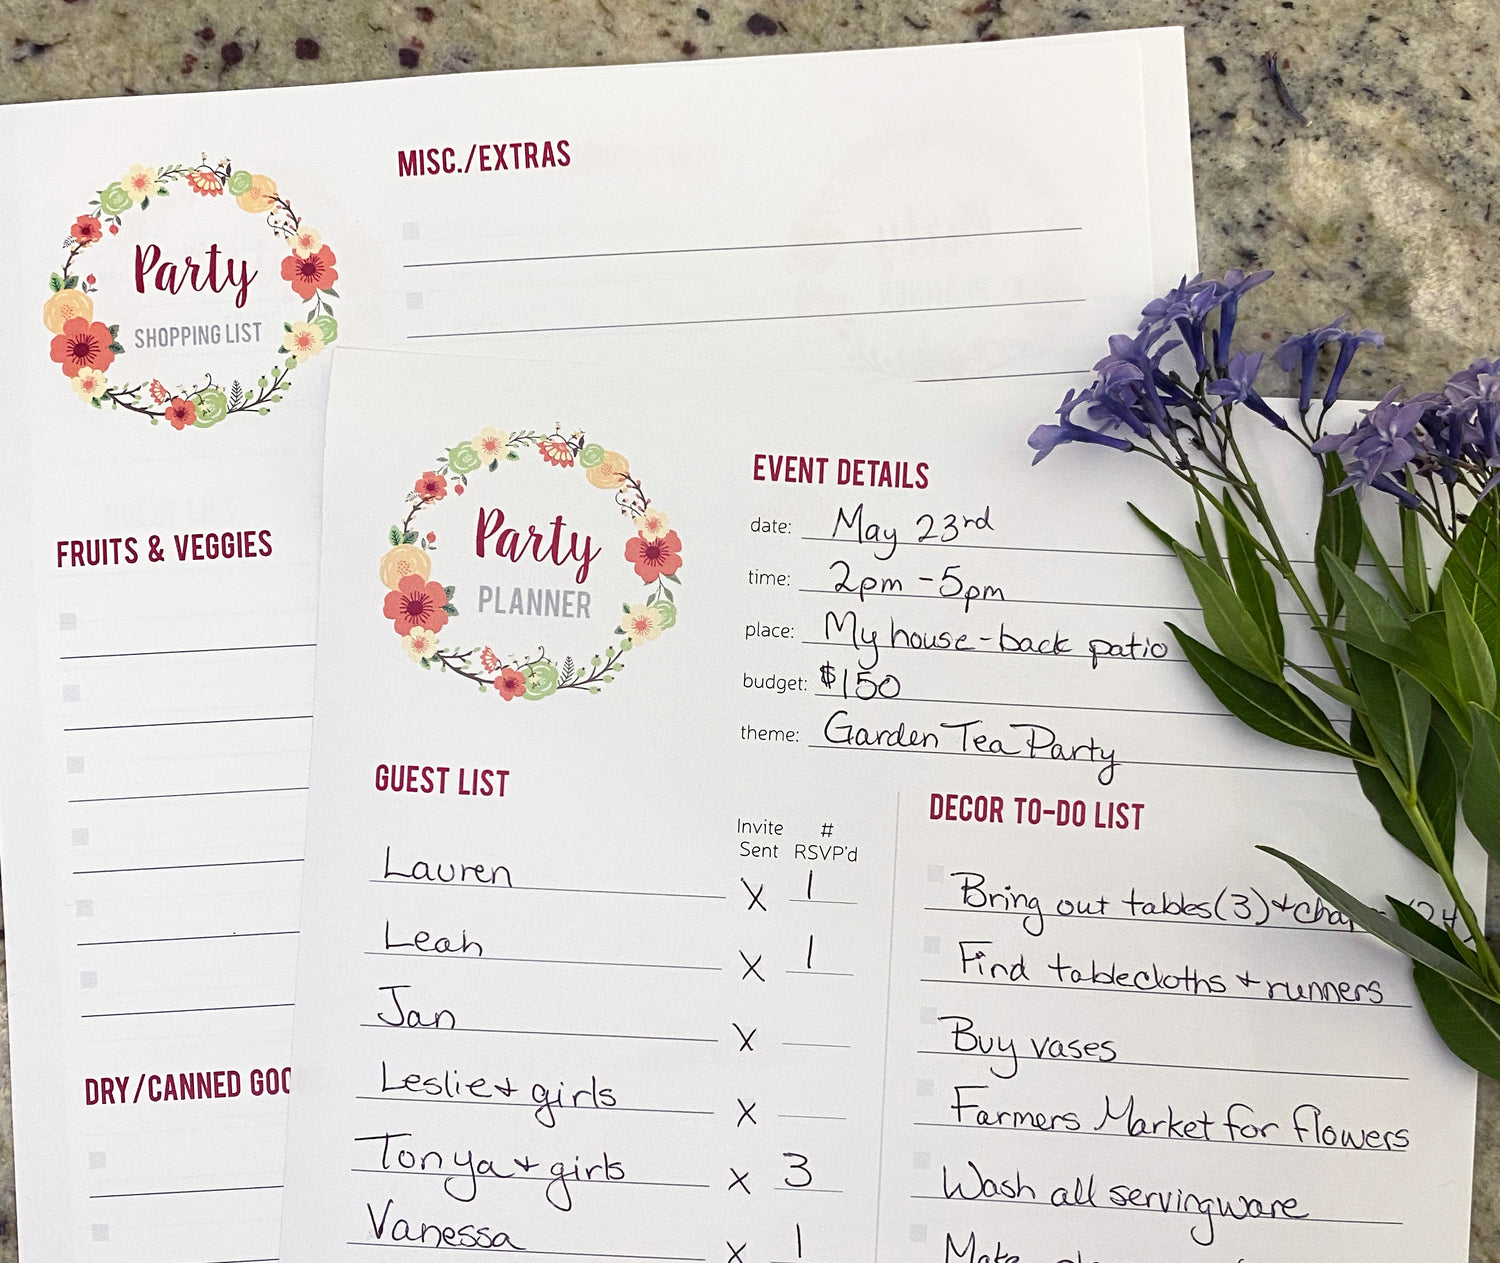 MISC./EXTRAS
Party
SHOPPING LIST
FRUITS & VEGGIES
DRY/CANNED
Party
PLANNER
EVENT DETAILS
date: May 23rd
time: 2pm - 5pm
place: My house - back patio
budget: $150
theme: Garden Tea Party
GUEST LIST
Invite Sent # RSVP'd
Lauren X 1
Leah X 1
Jan X
Leslie + girls X
Tonya + girls X 3
Vanessa X 1
DECOR TO-DO LIST
Bring out tables (3) +
Find tablecloths + runners
Buy vases
Farmers Market for flowers
Wash all servingware
Make